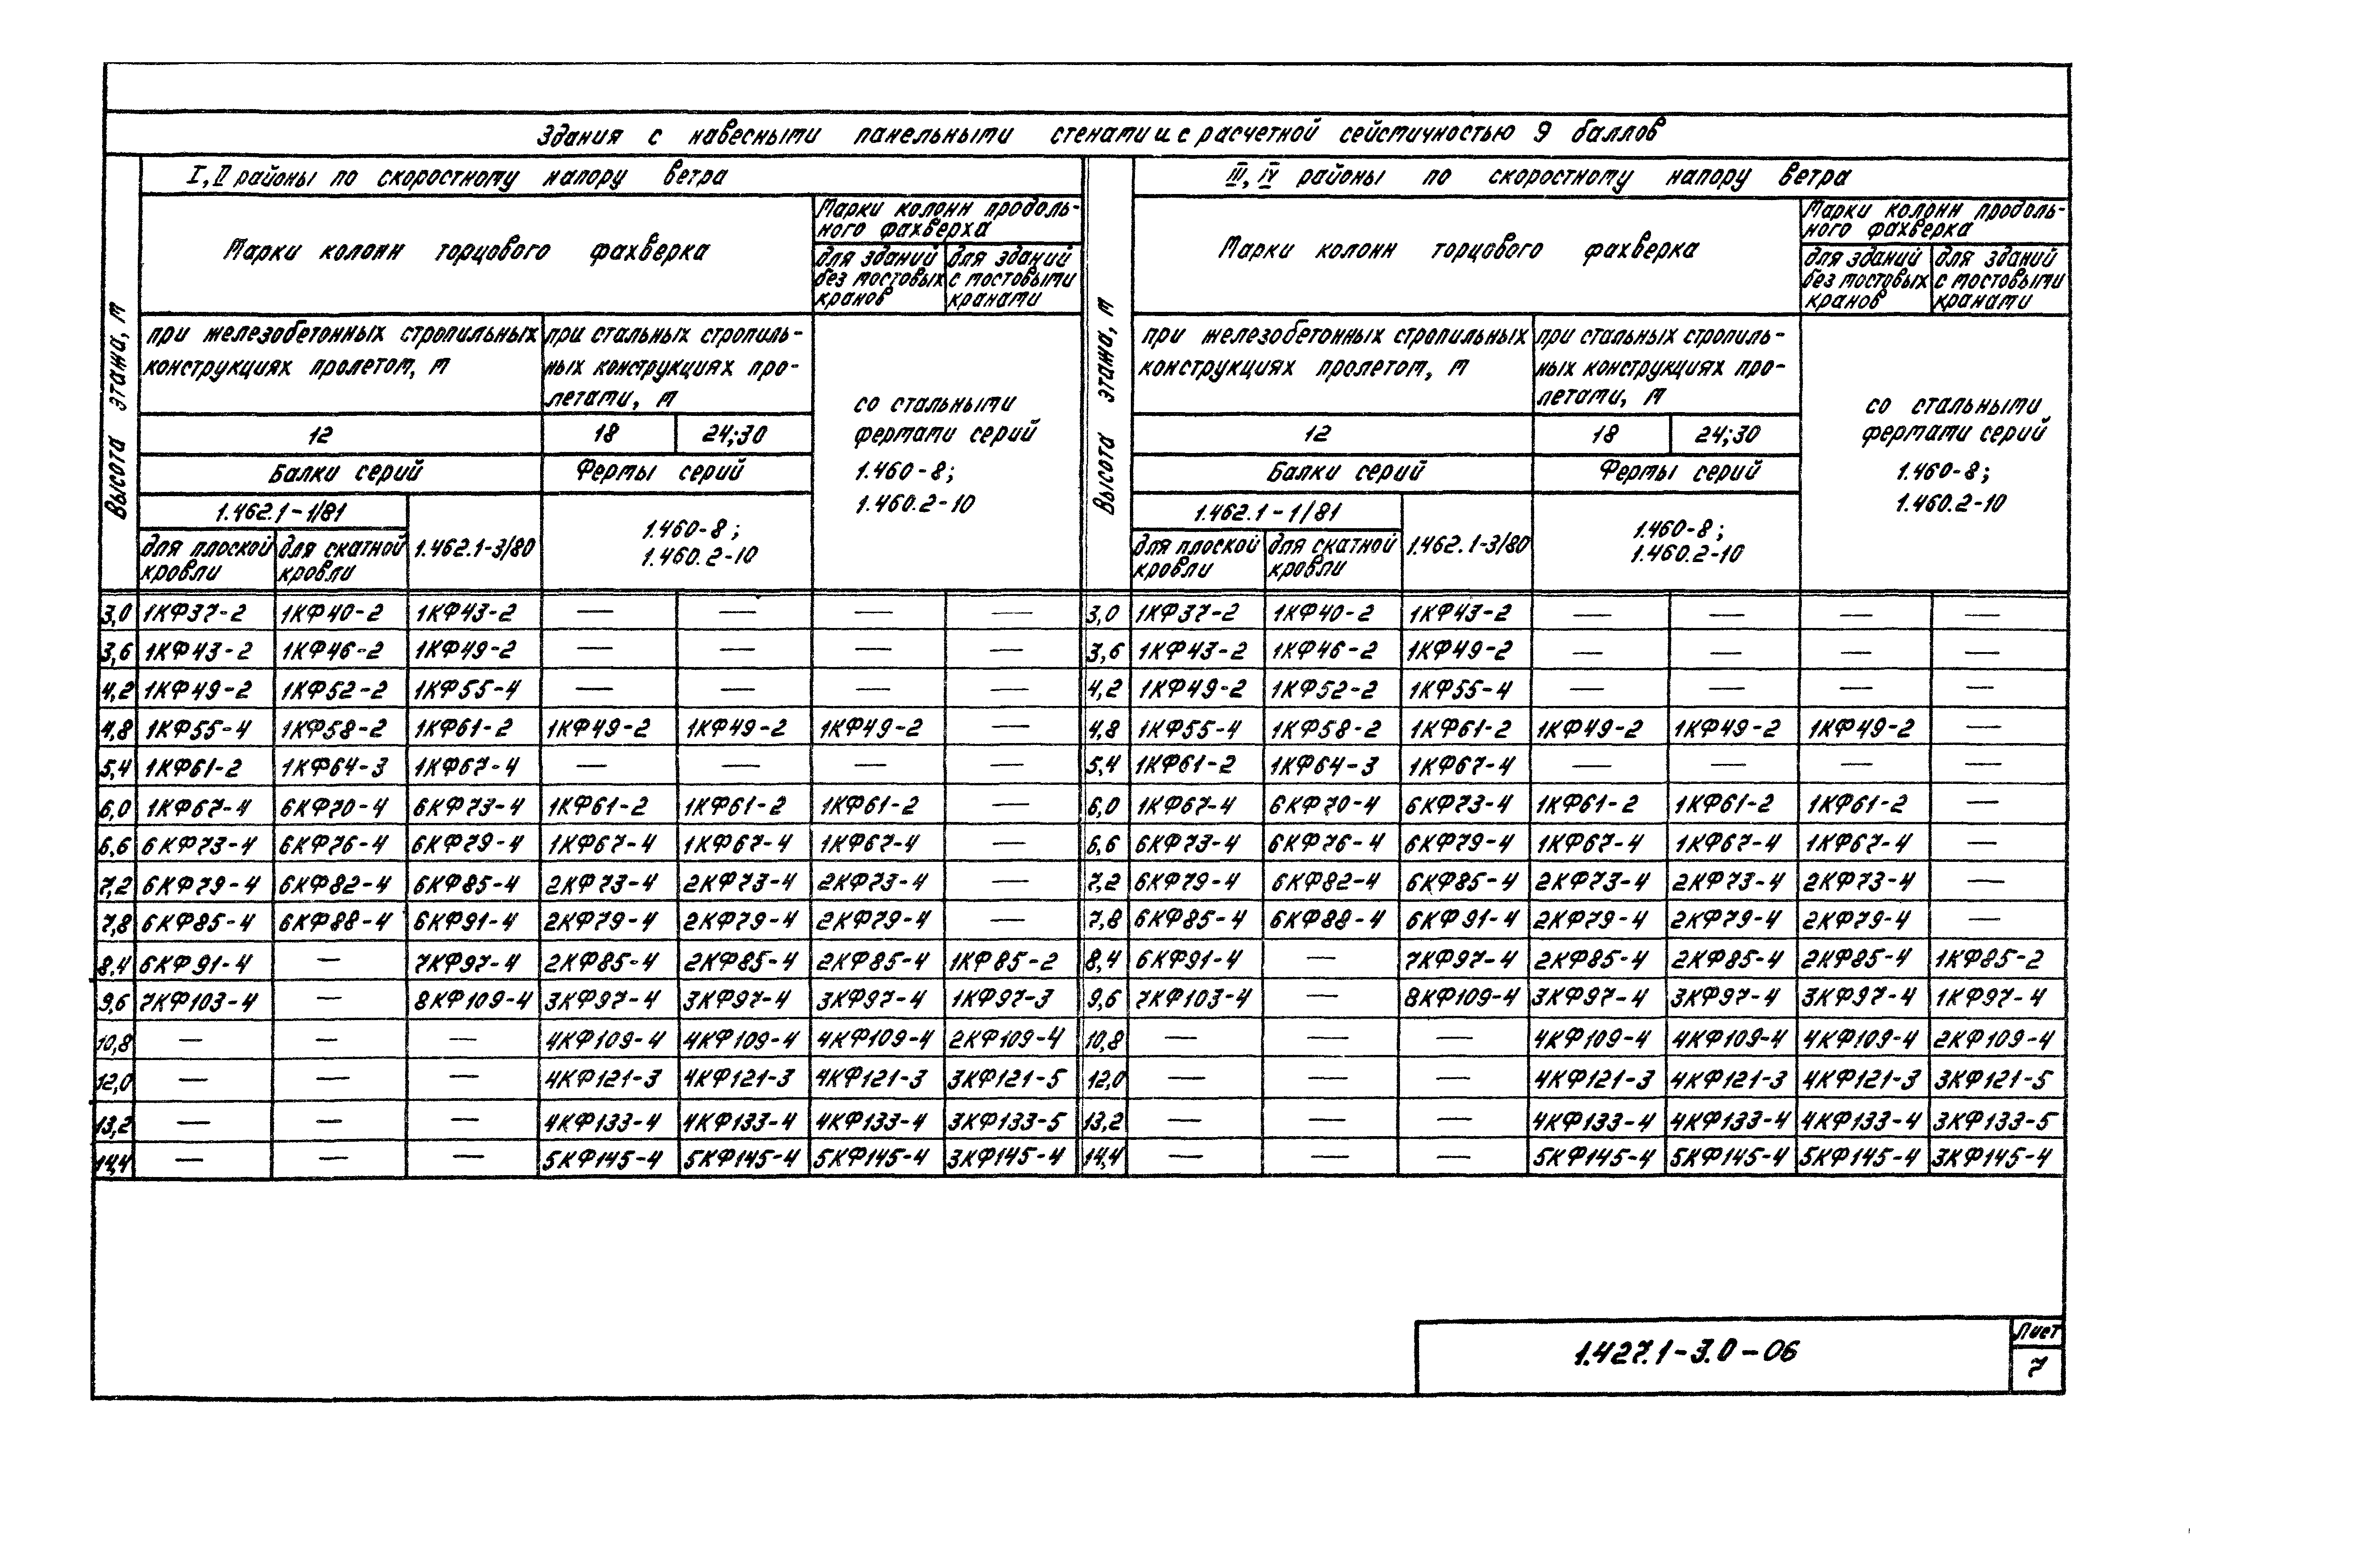 Здания с навесными панельными стенами и с расчетной сейсмичностью 9 баллов
Высота этажа, м
I, II районы по скоростному напору ветра
Марки колонн торцового фахверка
Марки колонн продоль-
ного фахверка
для зданий без мостовых кранов
для зданий с мостовыми кранами
при железобетонных стропильных
конструкциях пролетом, м
при стальных стропиль-
ных конструкциях про-
летами, м
со стальными
фермами серий
1.460-8;
1.460.2-10
12
18
24;30
Балки серий
Фермы серий
1.462.1-1/81
1.462.1-3/80
1.460-8;
1.460.2-10
для плоской кровли
для скатной кровли
Высота этажа, м
III, IV районы по скоростному напору ветра
Марки колонн торцового фахверка
Марки колонн продоль-
ного фахверка
для зданий без мостовых кранов
для зданий с мостовыми кранами
при железобетонных стропильных
конструкциях пролетом, м
при стальных стропиль-
ных конструкциях про-
летами, м
со стальными
фермами серий
1.460-8;
1.460.2-10
12
18
24;30
Балки серий
Фермы серий
1.462.1-1/81
1.462.1-3/80
1.460-8;
1.460.2-10
для плоской кровли
для скатной кровли
3,0 1КФ37-2 1КФ40-2 1КФ43-2 — — — — 3,0 1КФ37-2 1КФ40-2 1КФ43-2 — — — —
3,6 1КФ43-2 1КФ46-2 1КФ49-2 — — — — 3,6 1КФ43-2 1КФ46-2 1КФ49-2 — — — —
4,2 1КФ49-2 1КФ52-2 1КФ55-4 — — — — 4,2 1КФ49-2 1КФ52-2 1КФ55-4 — — — —
4,8 1КФ55-4 1КФ58-2 1КФ61-2 1КФ49-2 1КФ49-2 1КФ49-2 — 4,8 1КФ55-4 1КФ58-2 1КФ61-2 1КФ49-2 1КФ49-2 1КФ49-2 —
5,4 1КФ61-2 1КФ64-3 1КФ67-4 — — — — 5,4 1КФ61-2 1КФ64-3 1КФ67-4 — — — —
6,0 1КФ67-4 6КФ70-4 6КФ73-4 1КФ61-2 1КФ61-2 1КФ61-2 — 6,0 1КФ67-4 6КФ70-4 6КФ73-4 1КФ61-2 1КФ61-2 1КФ61-2 —
6,6 6КФ73-4 6КФ76-4 6КФ79-4 1КФ67-4 1КФ67-4 1КФ67-4 — 6,6 6КФ73-4 6КФ76-4 6КФ79-4 1КФ67-4 1КФ67-4 1КФ67-4 —
7,2 6КФ79-4 6КФ82-4 6КФ85-4 2КФ73-4 2КФ73-4 2КФ73-4 — 7,2 6КФ79-4 6КФ82-4 6КФ85-4 2КФ73-4 2КФ73-4 2КФ73-4 —
7,8 6КФ85-4 6КФ88-4 6КФ91-4 2КФ79-4 2КФ79-4 2КФ79-4 — 7,8 6КФ85-4 6КФ88-4 6КФ91-4 2КФ79-4 2КФ79-4 2КФ79-4 —
8,4 6КФ91-4 — 7КФ97-4 2КФ85-4 2КФ85-4 2КФ85-4 1КФ85-2 8,4 6КФ91-4 — 7КФ97-4 2КФ85-4 2КФ85-4 2КФ85-4 1КФ85-2
9,6 7КФ103-4 — 8КФ109-4 3КФ97-4 3КФ97-4 3КФ97-4 1КФ97-3 9,6 7КФ103-4 — 8КФ109-4 3КФ97-4 3КФ97-4 3КФ97-4 1КФ97-4
10,8 — — — 4КФ109-4 4КФ109-4 4КФ109-4 2КФ109-4 10,8 — — — 4КФ109-4 4КФ109-4 4КФ109-4 2КФ109-4
12,0 — — — 4КФ121-3 4КФ121-3 4КФ121-3 3КФ121-5 12,0 — — — 4КФ121-3 4КФ121-3 4КФ121-3 3КФ121-5
13,2 — — — 4КФ133-4 4КФ133-4 4КФ133-4 3КФ133-5 13,2 — — — 4КФ133-4 4КФ133-4 4КФ133-4 3КФ133-5
14,4 — — — 5КФ145-4 5КФ145-4 5КФ145-4 3КФ145-4 14,4 — — — 5КФ145-4 5КФ145-4 5КФ145-4 3КФ145-4
1.427.1-3.0-06
Лист
7